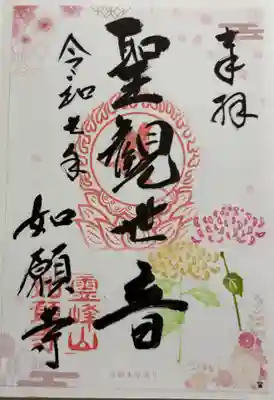 奉拝
聖観世音
令和七年
如願寺
霊峰山